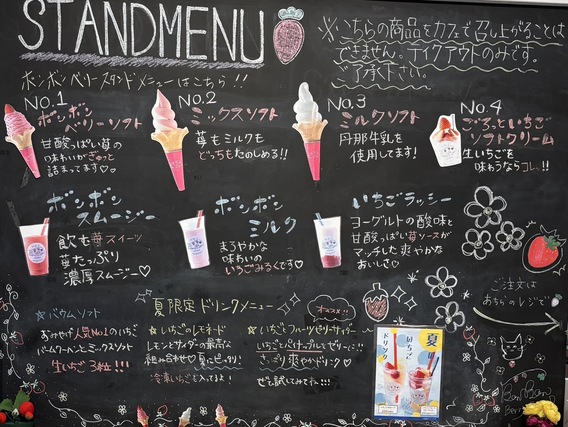 STANDMENU
※こちらの商品をカフェで召し上がることは
できません。テイクアウトのみです。
ご了承下さい。
ボンボンベリースタンドメニューはこちら!!
No.1
ボンボン
ベリーソフト
甘酸っぱい苺の
味わいがぎゅっと
詰まってます♡
No.2
ミックスソフト
苺もミルクも
どっちもたのしめる!!
No.3
ミルクソフト
丹那牛乳を
使用してます!
No.4
ごろっといちご
ソフトクリーム
生いちごを
味わうならコレ!!
ボンボン
スムージー
飲む苺スイーツ
苺たっぷり
濃厚スムージー♡
ボンボン
ミルク
まろやかな
味わいの
いちごみるくです♡
いちごラッシー
ヨーグルトの酸味と
甘酸っぱい苺ソースが
マッチした爽やかな
おいしさ♡
ご注文は
あちらのレジで
☆バウムソフト
おみやげ人気No.1のいちご
バームクーヘンとミックスソフト
生いちご3粒!!!
夏限定ドリンクメニュー
☆いちごのレモネード
レモンとサイダーの最高な
組み合わせ♡夏にピッタリ!
冷凍いちご入ってるよ!
オススメ!!
☆いちごフルーツゼリーサイダー
いちごとパイナップルでゼリーに!!
さっぱり爽やかドリンク♡
ぜひ試してみてネ!!!
夏の
いちご
ドリンク
BonBon
Berry